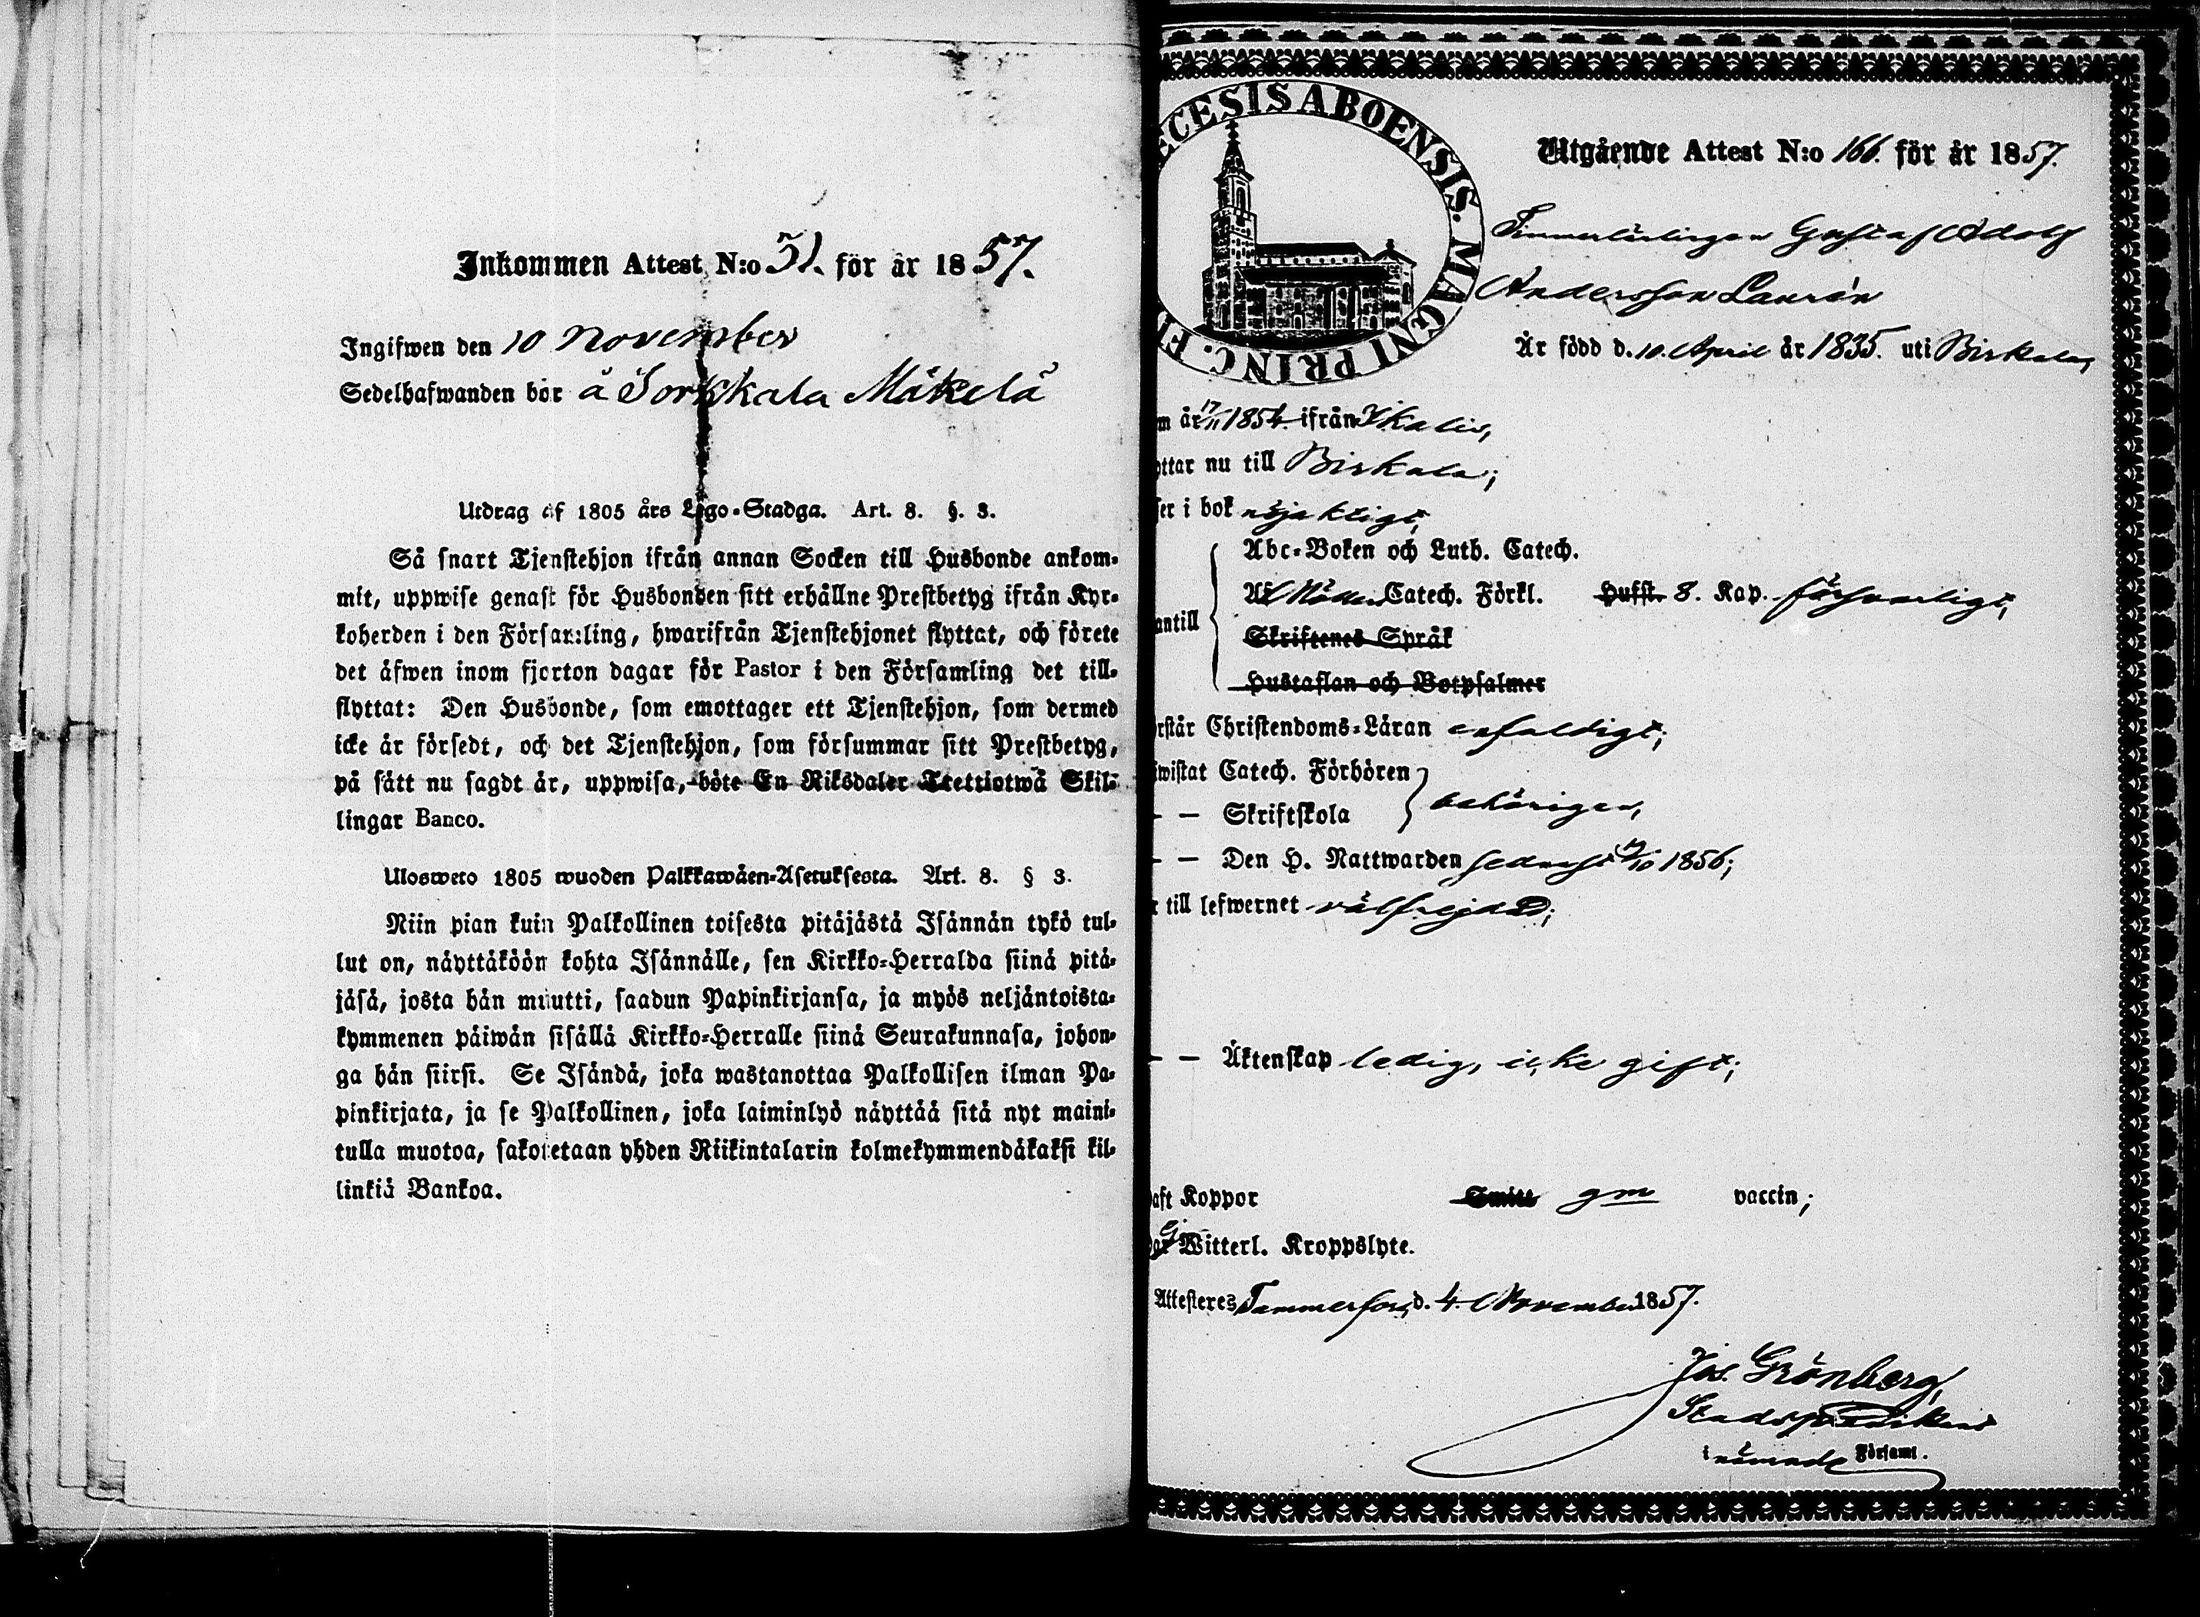 Inkommen Attest N:o 51. för år 1857.
Ingifwen den 10 November
Sedelhafwanden bor å Sorkkala Mäkelä
Utdrag af 1805 års Lego-Stadga. Art. 8. §. 3.
Så snart Tjenstehjon ifrån annan Socken till Husbonde ankom-
mit, uppwise genast för Husbonden sitt erhållne Prestbetyg ifrån Kyr-
koherden i den Församling, hwarifrån Tjenstehjonet flyttat, och förete
det äfwen inom fjorton dagar för Pastor i den Församling det till-
flyttat: Den Husbonde, som emottager ett Tjenstehjon, som dermed
icke är försedt, och det Tjenstehjon, som försummar sitt Prestbetyg,
på sätt nu sagdt är, uppwisa, böte En Riksdaler Trettiotwå Skil-
lingar Banco.
Ulosweto 1805 wuoden Palkkawäen-Asetuksesta. Art. 8. § 3.
Niin pian kuin Palkollinen toisesta pitäjästä Isännän tykö tul-
lut on, näyttäköön kohta Isännälle, sen Kirkko-Herralda siinä pitä-
jäsä, josta hän muutti, saadun Papinkirjansa, ja myös neljäntoista-
kymmenen päiwän sisällä Kirkko-Herralle siinä Seurakunnasa, johon-
ga hän siirsi. Se Isändä, joka wastanottaa Palkollisen ilman Pa-
pinkirjata, ja se Palkollinen, joka laiminlyö näyttää sitä nyt maini-
tulla muotoa, sakotetaan yhden Riikintalarin kolmekymmendäkaksi kil-
linkiä Bankoa.
ECESIS ABOENSIS. MAGNI PRINC. FI
Utgående Attest N:o 166. för år 1857.
Gustaf Adolf
Andersson Laurén
Är född d. 10. April år 1835. uti Birkala,
m år 17/11 1854 ifrån Ikalis,
ottar nu till Birkala;
ser i bok nöjaktigt,
Abc-Boken och Luth. Catech.
Catech. Förkl. Hufst. 8. Kap. försvarligt,
antill
Skriftenes Språk
Hustaflan och Botpsalmer
rstår Christendoms-Läran enfaldigt;
iwistat Catech. Förhören
- - Skriftskola behörigen,
- - Den H. Nattwarden sednast 1856;
r till lefwernet välfrejdad;
- - Äktenskap ledig, icke gift;
aft Koppor Smitt gm vaccin;
Ej Witterl. Kroppslyte.
Attesteres Tammerfors, d. 4. November 1857.
Jos. Grönberg,
Stadspredikant
i nämnde Församl.